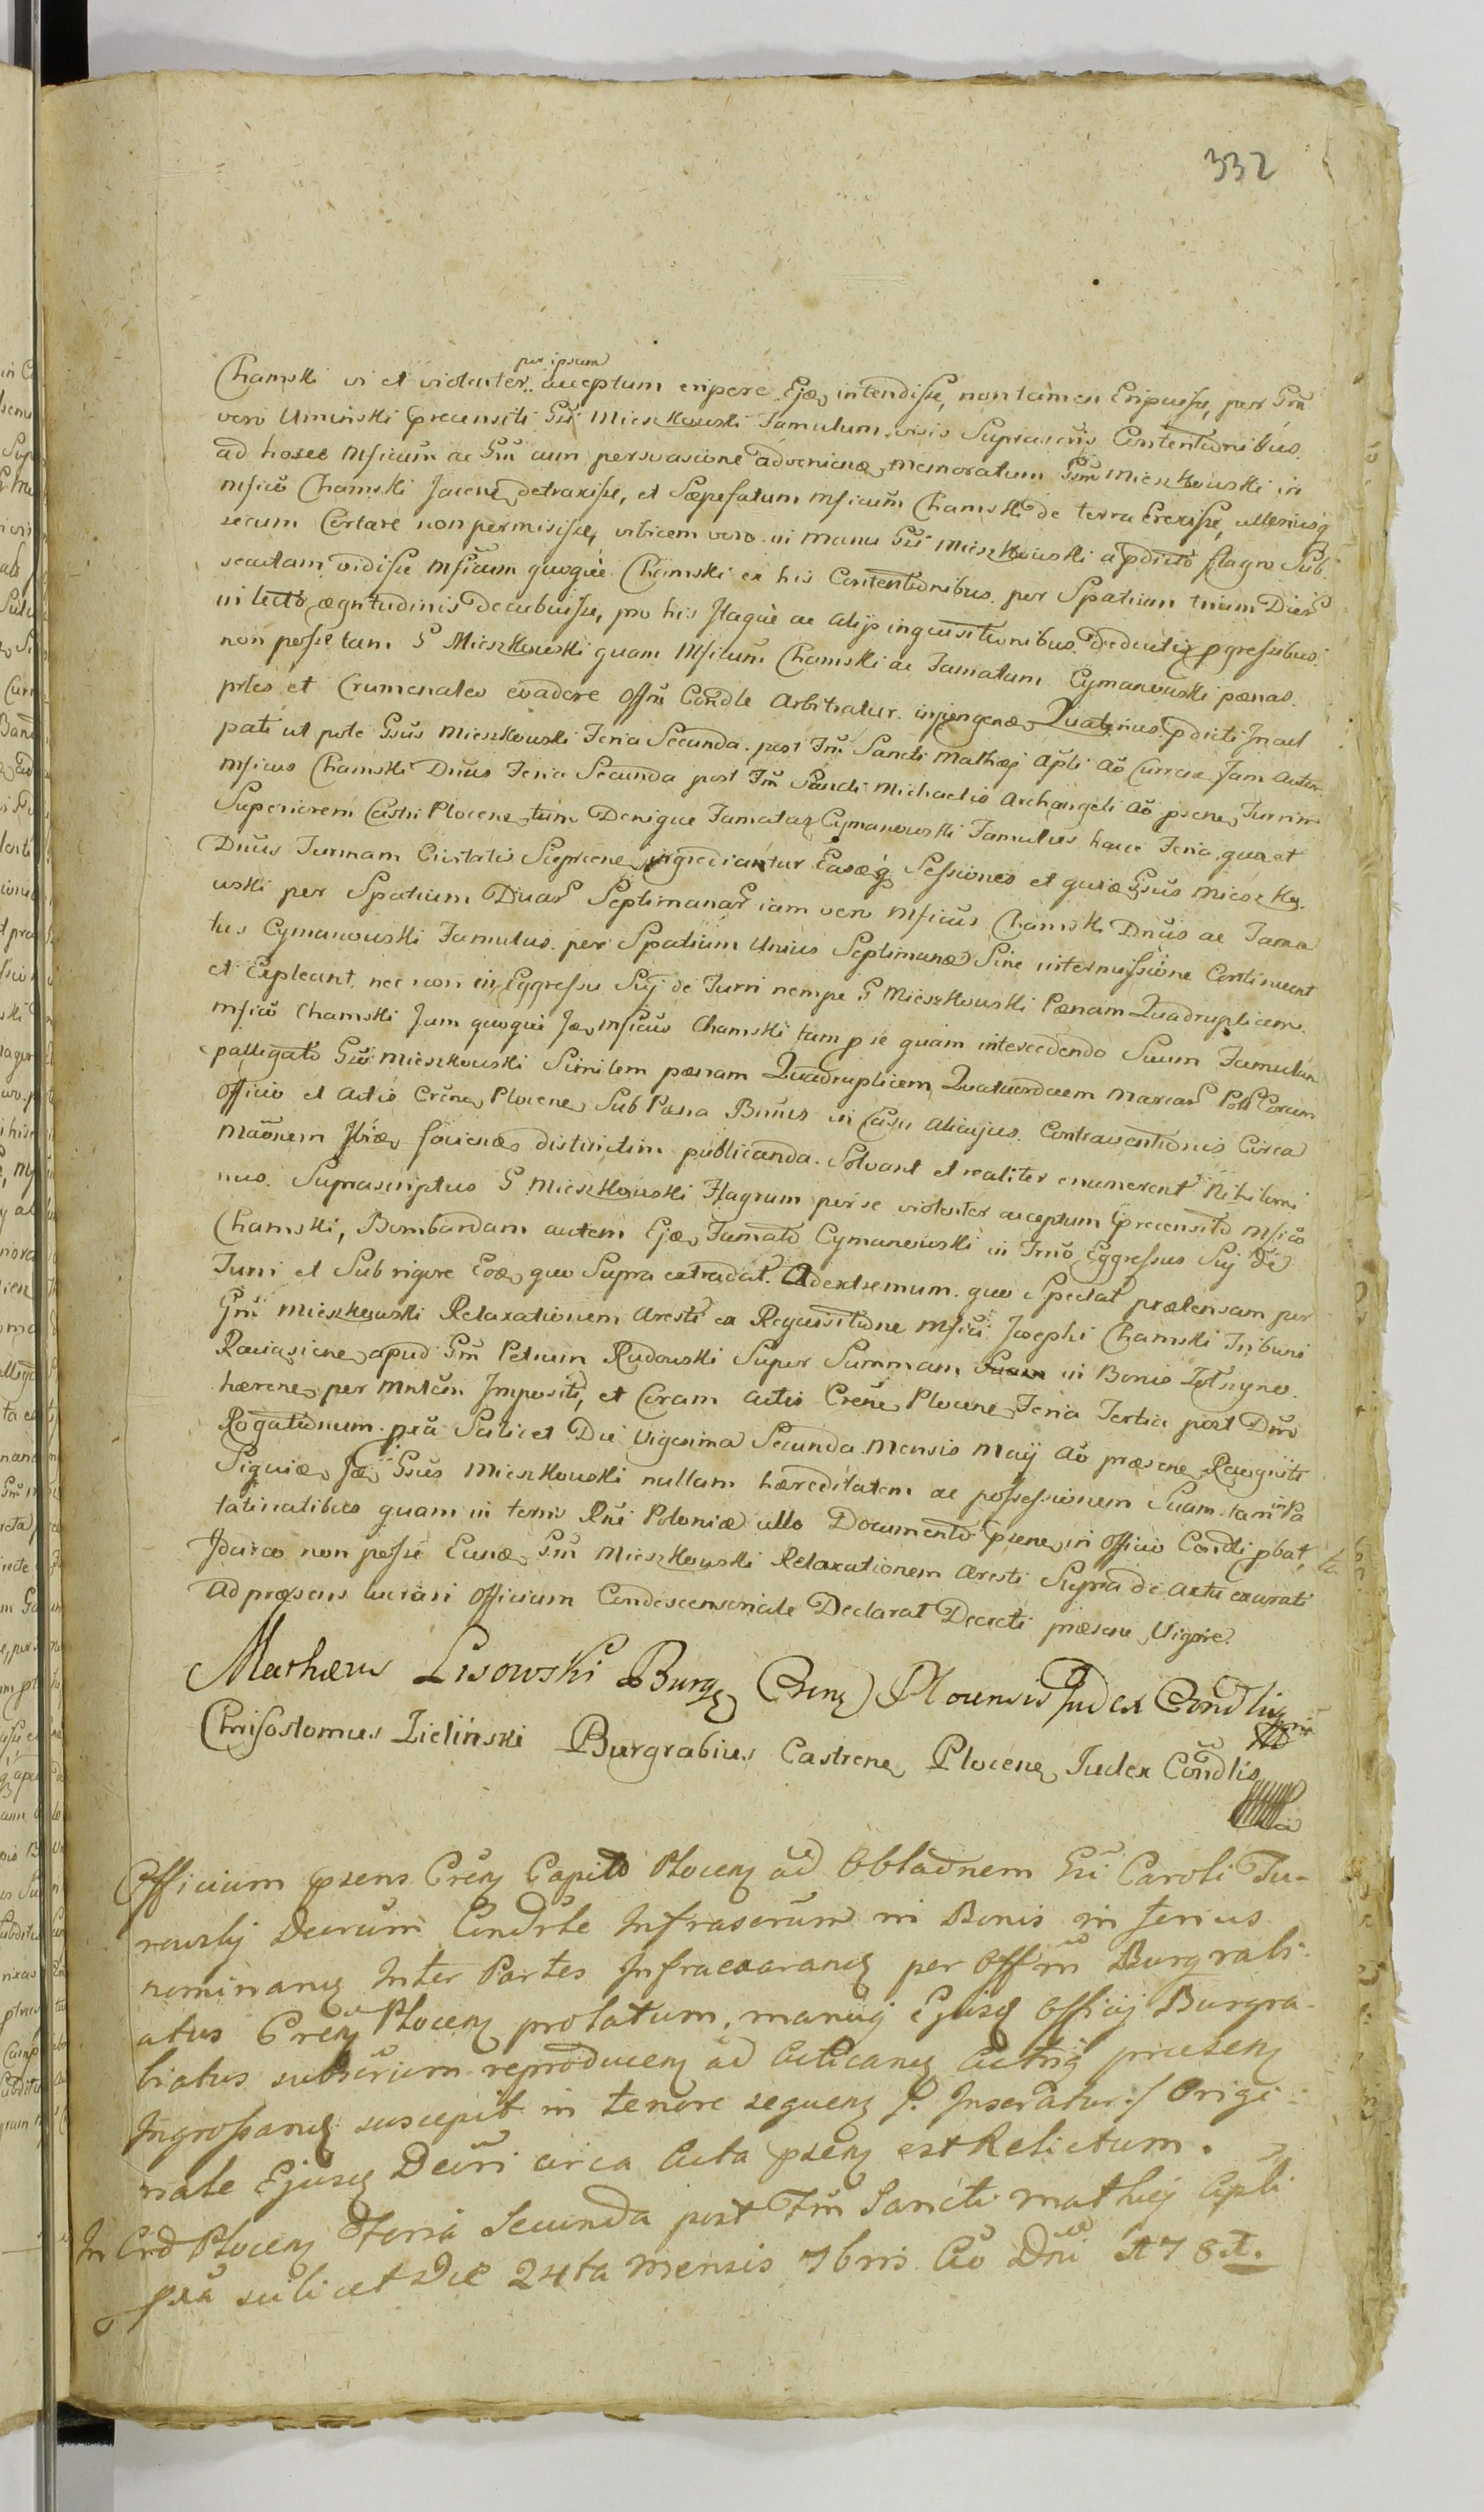 332
per ipsum
Chamski vi et violenter acceptum eripere Ejq intendisse, non tamen Eripuisse, per Gm̃
vero Uminski precensiti Gsi Mieszkowski Famulum, visis Suprascriis Contentionibus.
ad hosce Mficum̃ ac Gm̃ cum persvasione adveniens memoratum Gsm̃ Mieszkowski in
Mfico Chamski Jacens detraxisse, et Sæpefatum Mficum̃ Chamski de terra Erexisse, ulteriusq
secum Certare non permisisse, vibicem vero in manu Gsi Mieszkowski a pdicto flagro Sub
secutam vidisse Mficum̃ quoque Chamski ex his Contentionibus per Spatium trium Dier
in lecto ægritudinis Decubuisse, pro his Itaque ac alijs inquisitionibus Deductis pgressibus
non posse tam G Mieszkowski quam Mficum̃ Chamski ac Famatum Cymanowski pænas
prtes et Crumenales evadere Offm̃ Condle Arbitratur injungens Quatenus pdicti Incul
pati ut pote Gsus Mieszkowski Feria Secunda post Fm̃ Sancti Mathæi Apli Ao Curren Jam autem
Mficus Chamski Dnus Feria Secunda post Fm̃ Sancti Michaelis Archangeli Ao psens Turrim
Superiorem Castri Plocens tum Denique Famatus Cymanowski Famulus hacce Feria qua et
Dnus Turrmam Civitatis Scepcens ingrediantur Easq Sessiones et quidem Gsus Mieszko
wski per Spatium Duar Septimanar iam vero Mficus Chamski Dnus ac Fama
tus Cymanowski Famulus per Spatium Unius Septimanæ Sine intermissione Contineant
et Expleant, nec non in Eggressu Suj de Turri nempe G Mieszkowski Pænam Quadruplicem
Mfico Chamski Jam quoque Mficus Chamski tam p se quam intercedendo Suum Famulum
pallegato Gsõ Mieszkowski Similem pænam Quadruplicem Quatuordecem Marcar Poll Coram
Officio et Actis Crens Plocens Sub Pæna Bannis in Casu alicujus Contraventionis Circa
Maõnem faciens distinctim publicanda. Solvant et realiter enumerent Nihilomi
nus. Suprascriptus G Mieszkowski Flagrum per se violenter acceptum precensito Mfico
Chamski, Bombardam autem Ejq Famato Cymanowski in Trno Eggressus Suj de
Turri et Sub rigore Eoq quo Supra extradat. Ad extremum quo Spectat prætensam per
Gm̃ Mieszkowski Relaxationem Aresti ex Requisitione Mfici Josephi Chamski Tribuni
Raciasiens apud Gm̃ Petrum Rudowski Super Summam Suam in Bonis
hærens per Mntum Impositi, et Coram Actis Crens Plocens Feria Tertia post Dm̃
Rogationum pxa Scilicet Die Vigesima Secunda Mensis Maij Ao præsens Recogniti
Siquidem Gsus Mieszkowski nullam hæreditatem ac possessionem Suam tam in Pa
latinatibus quam in terris Rni Poloniæ ullo Documento psens in Officio Condli pbat,
Idcirco non posse Eunq Gm̃ Mieszkowski Relaxationem Aresti Supra de actu exarati
ad præsens lucrari Officium Condescensoriale Declarat Decreti præsens Vigore.
Mathæus Lisowski Burgs Crens Plocensis Judex Condlis
Chrisostomus Zieliński Burgrabius Castrens Plocens Judex Condlis
Officium psens Crens Capito Plocens ad Oblãnem Gsi Caroli Tu-
rowskj Decrum Condrle Infrascrum in Bonis in ferius
nominans Inter Partes Infraexarans per Offm̃ Burgrabi-
atus Crens Plocens prolatum, manuq Ejusq Officij Burgra-
biatus subscrum reproducens ad Acticans Actisq præsens
Ingrossans suscepit in tenore sequens /: Inseratur :/ Origi-
nale Ejusq Decri circa Acta psens est Relictum.
In Crd Plocens Feria Secunda post Fm̃ Sancti Mathej Apli
pxa scilicet Die 24ta Mensis 7bris Ao Dni 1781.